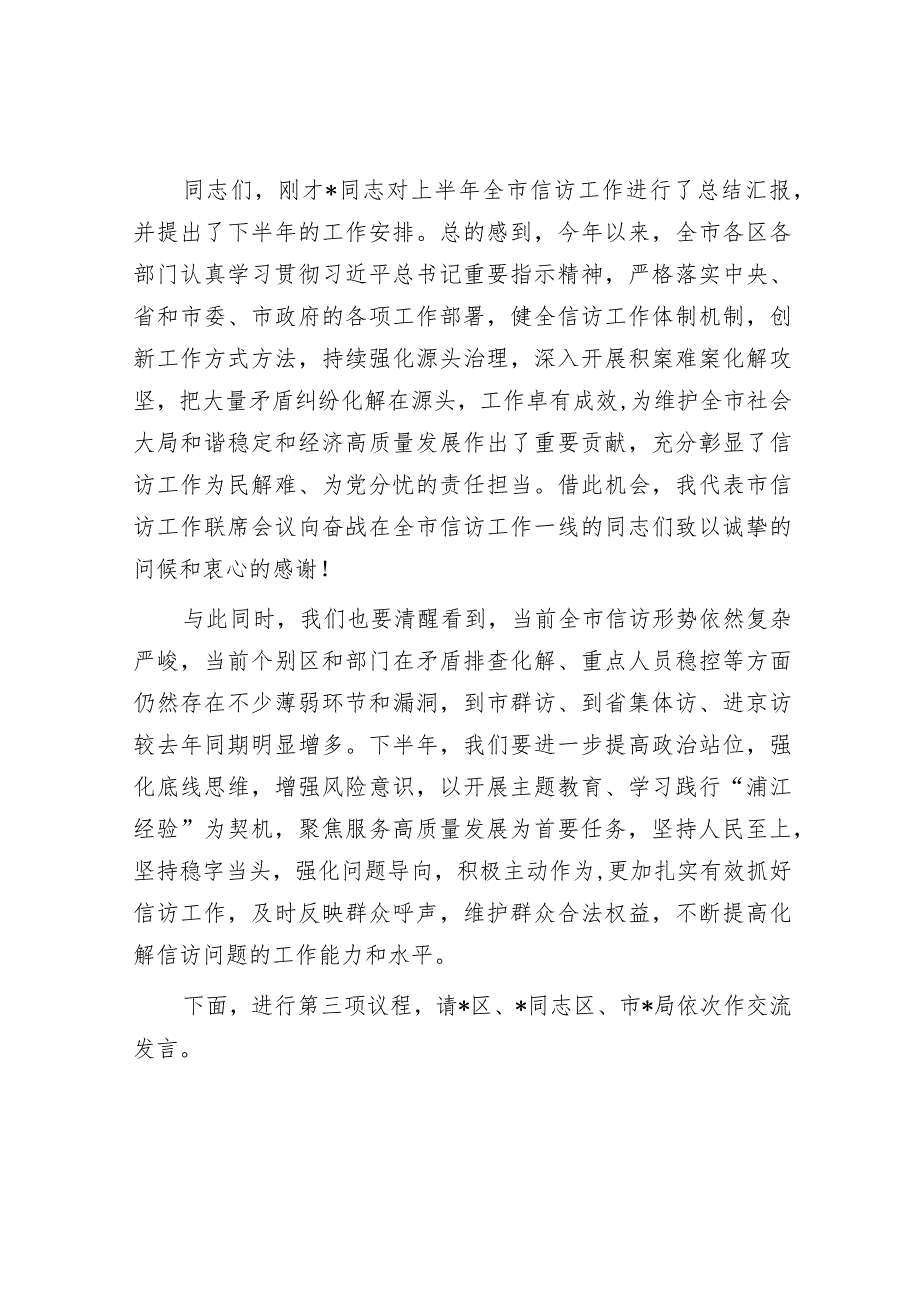 同志们，刚才*同志对上半年全市信访工作进行了总结汇报，
并提出了下半年的工作安排。总的感到，今年以来，全市各区各
部门认真学习贯彻习近平总书记重要指示精神，严格落实中央、
省和市委、市政府的各项工作部署，健全信访工作体制机制，创
新工作方式方法，持续强化源头治理，深入开展积案难案化解攻
坚，把大量矛盾纠纷化解在源头，工作卓有成效,为维护全市社会
大局和谐稳定和经济高质量发展作出了重要贡献，充分彰显了信
访工作为民解难、为党分忧的责任担当。借此机会，我代表市信
访工作联席会议向奋战在全市信访工作一线的同志们致以诚挚的
问候和衷心的感谢！
与此同时，我们也要清醒看到，当前全市信访形势依然复杂
严峻，当前个别区和部门在矛盾排查化解、重点人员稳控等方面
仍然存在不少薄弱环节和漏洞，到市群访、到省集体访、进京访
较去年同期明显增多。下半年，我们要进一步提高政治站位，强
化底线思维，增强风险意识，以开展主题教育、学习践行“浦江
经验”为契机，聚焦服务高质量发展为首要任务，坚持人民至上，
坚持稳字当头，强化问题导向，积极主动作为,更加扎实有效抓好
信访工作，及时反映群众呼声，维护群众合法权益，不断提高化
解信访问题的工作能力和水平。
下面，进行第三项议程，请*区、*同志区、市*局依次作交流
发言。